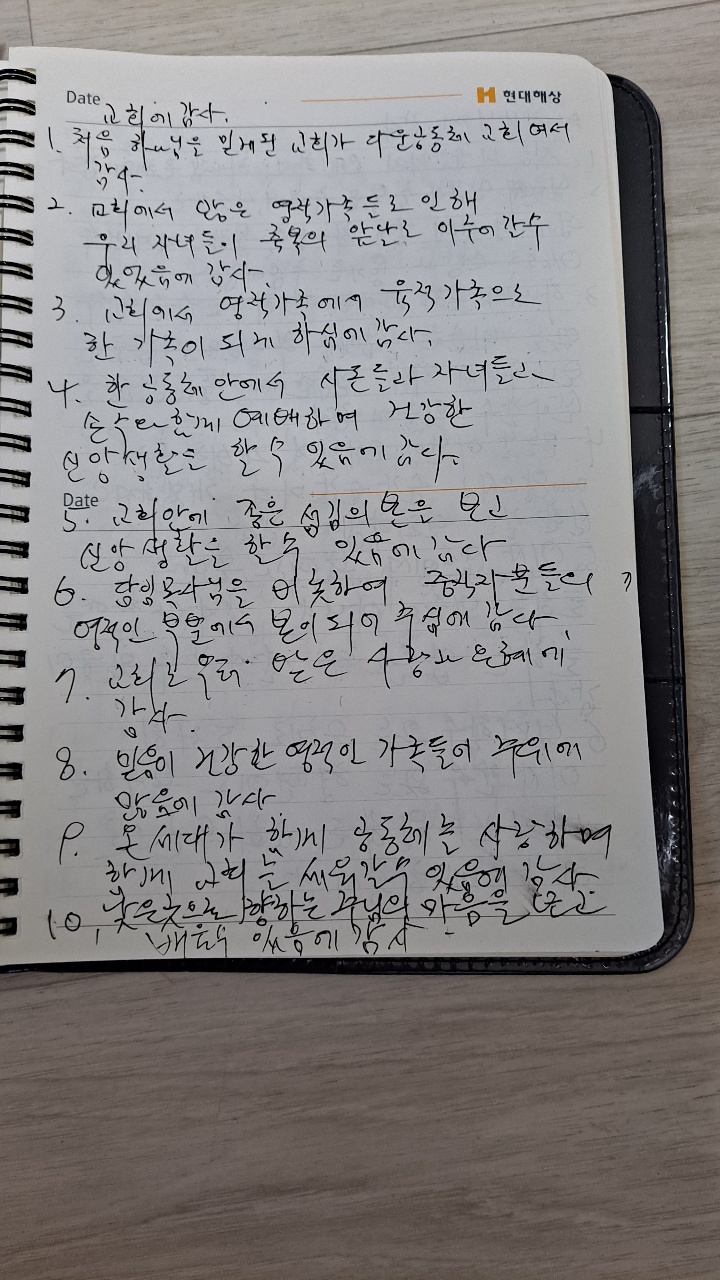 Date
현대해상
교회에 감사.
1. 처음 하나님을 믿게된 교회가 다운공동체 교회여서
감사.
2. 교회에서 많은 영적가족들로 인해
우리 자녀들이 축복의 앞날로 이루어 갈수
있었음에 감사.
3. 교회에서 영적가족에서 육적가족으로
한 가족이 되게 하심에 감사.
4. 한 공동체 안에서 사돈들과 자녀들고
손주 함께 예배하며 건강한
신앙생활을 할 수 있음에 감사.
Date
5. 교회안에 좋은 섬김의 본을 보고
신앙생활을 할수 있음에 감사
6. 담임목사님을 비롯하여 중직자분들의
영적인 부모에서 본이 되어 주심에 감사.
7. 교회로 우리 받은 사랑과 은혜에
감사.
8. 믿음이 건강한 영적인 가족들이 주위에
많음에 감사
9. 온세대가 함께 공동체를 사랑하며
함께 교회를 세워갈수 있음에 감사
10. 낮은곳으로 향하는 주님의 마음을 보고
배울수 있음에 감사